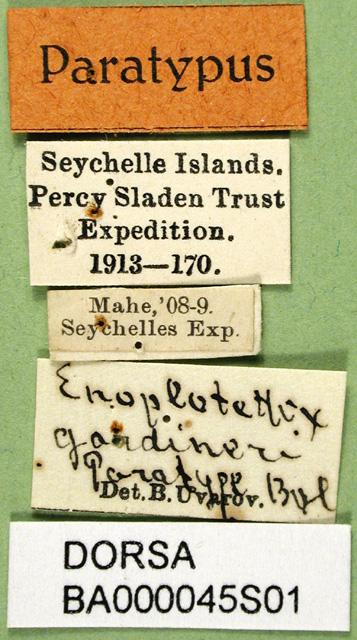 Paratypus
Seychelle Islands.
Percy Sladen Trust
Expedition.
1913—170.
Mahe,'08-9.
Seychelles Exp.
Enoplotettix
gardineri
Paratype Bol
Det. B. Uvarov.
DORSA
BA000045S01